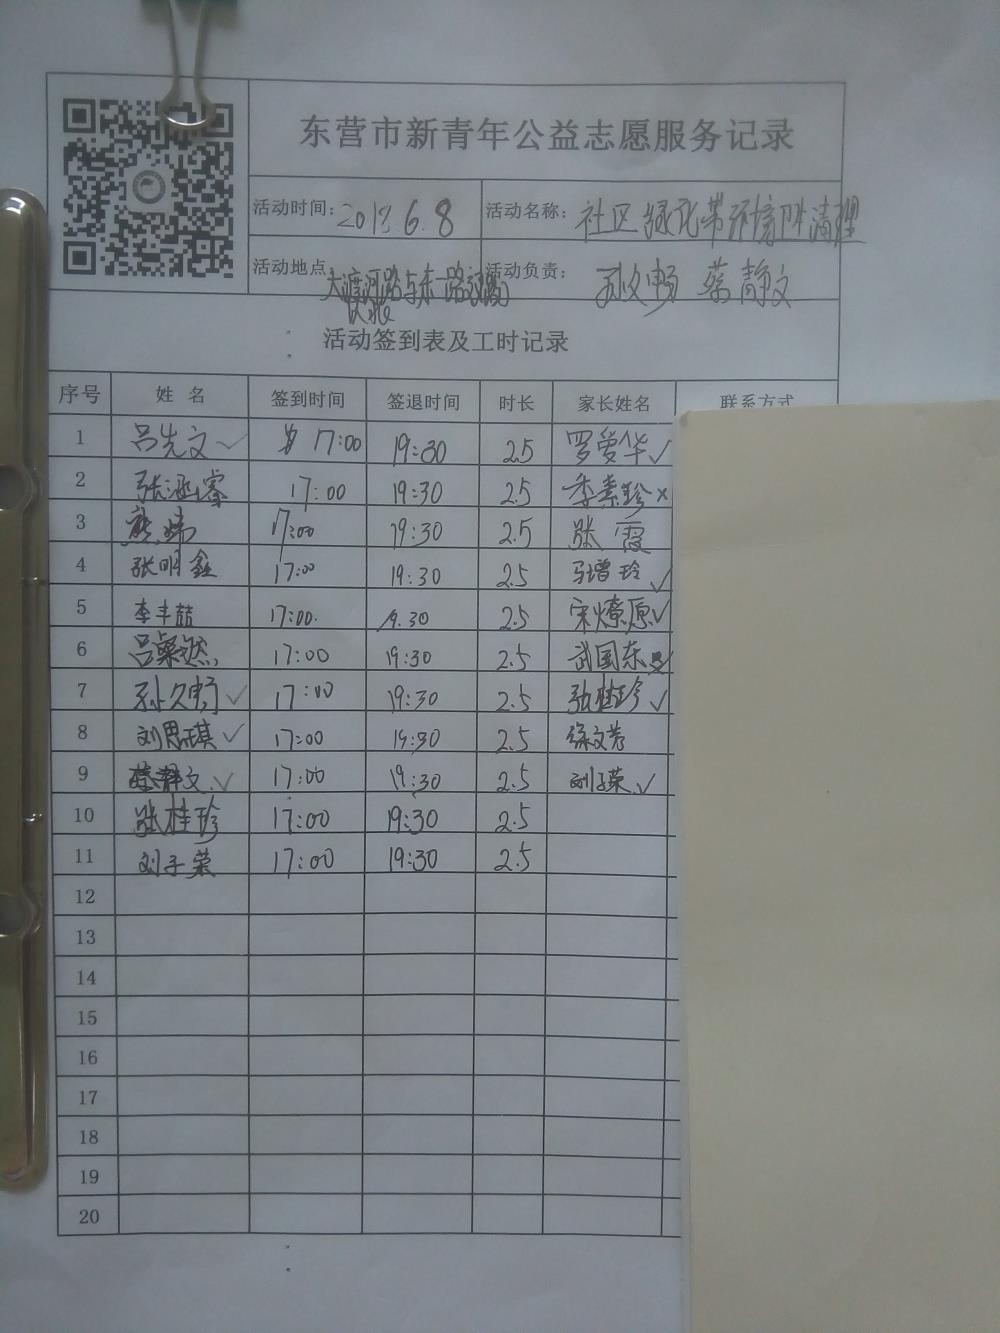 东营市新青年公益志愿服务记录
活动时间: 2018.6.8 活动名称: 社区绿化带环境清理
活动地点 大渡河路与东一路 活动负责: 孙久畅 蔡静文
活动签到表及工时记录
序号 姓名 签到时间 签退时间 时长 家长姓名 联系方式
1 吕先文 17:00 19:30 2.5 罗爱华
2 张涵睿 17:00 19:30 2.5 季素珍
3 熊炜 17:00 19:30 2.5 张霞
4 张明鑫 17:00 19:30 2.5 马增玲
5 李丰喆 17:00 19.30 2.5 宋燎原
6 吕粲然 17:00 19:30 2.5 武国东
7 孙久畅 17:00 19:30 2.5 张桂珍
8 刘思琪 17:00 19:30 2.5 徐文芳
9 蔡静文 17:00 19:30 2.5 刘子荣
10 张桂珍 17:00 19:30 2.5
11 刘子荣 17:00 19:30 2.5
12
13
14
15
16
17
18
19
20